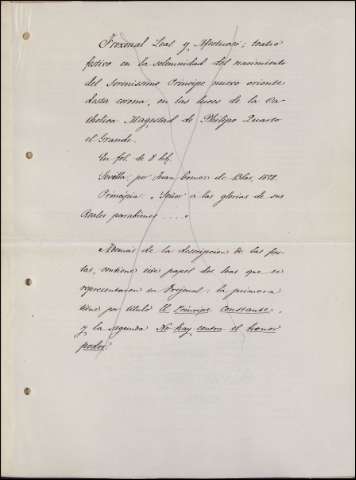 Frexenal Leal y Afectuosa; teatro
festivo en la solemnidad del nacimiento
del Serenissimo Principe nuevo oriente
desta corona, en las luces de la Ca-
tholica Magestad de Philipo Quarto
el Grande.
En fol. de 8 hs.
Sevilla: por Juan Gomez de Blas, 1658.
Principia: « Señor a las glorias de sus
Reales parabienes . . . . »
Además de la descripcion de las fies-
tas, contiene este papel dos loas que se
representaron en Frejenal: la primera
tiene por título El Principe Constante,
y la segunda No hay contra el honor
poder.